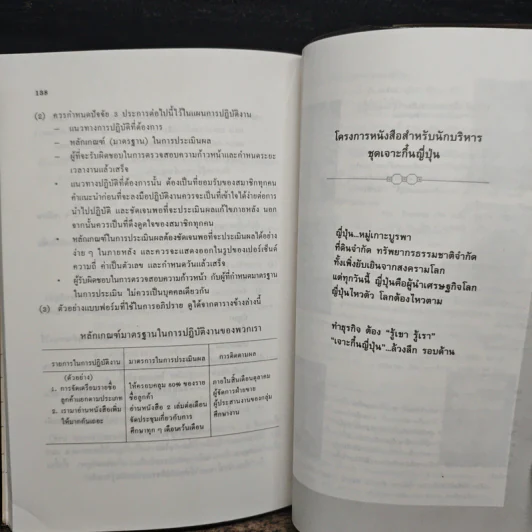 138
(๔) ควรกำหนดปัจจัย 3 ประการต่อไปนี้ไว้ในแผนการปฏิบัติงาน
– แนวทางการปฏิบัติที่ต้องการ
– หลักเกณฑ์ (มาตรฐาน) ในการประเมินผล
– ผู้ที่จะรับผิดชอบในการตรวจสอบความก้าวหน้าและกำหนดระยะ
เวลางานแล้วเสร็จ
• แนวทางปฏิบัติที่ต้องการนั้น ต้องเป็นที่ยอมรับของสมาชิกทุกคน
คำแนะนำก่อนที่จะลงมือปฏิบัติงานควรจะเป็นที่เข้าใจได้ง่ายต่อการ
นำไปปฏิบัติ และชัดเจนพอที่จะประเมินผลแก้ไขภายหลัง นอก
จากนั้นควรเป็นที่ดึงดูดใจของสมาชิกทุกคน
• หลักเกณฑ์ในการประเมินผลต้องชัดเจนพอที่จะประเมินผลได้อย่าง
ง่าย ๆ ในภายหลัง และควรจะแสดงออกในรูปของเปอร์เซ็นต์
ความถี่ ค่าเป็นตัวเลข และกำหนดวันแล้วเสร็จ
• ผู้รับผิดชอบในการตรวจสอบความก้าวหน้า กับผู้ที่กำหนดมาตรฐาน
ในการประเมิน ไม่ควรเป็นบุคคลเดียวกัน
ตัวอย่างแบบฟอร์มที่ใช้ในการอภิปราย ดูได้จากตารางข้างล่างนี้
หลักเกณฑ์มาตรฐานในการปฏิบัติงานของพวกเรา
รายการในการปฏิบัติงาน มาตรการในการประเมินผล การติดตามผล
(ตัวอย่าง)
๑. การจัดเตรียมรายชื่อ
ลูกค้าแยกตามประเภท
๒. เรามาอ่านหนังสือเพิ่ม
ให้มากกันเถอะ
ให้ครอบคลุม ๘๐% ของราย
ชื่อลูกค้า
อ่านหนังสือ ๕ เล่มต่อเดือน
จัดประชุมเกี่ยวกับการ
ศึกษาทุก ๆ เดือนเว้นเดือน
ภายในสิ้นเดือนตุลาคม
ผู้จัดการฝ่ายขาย
ผู้ประสานงานของกลุ่ม
ศึกษางาน
โครงการหนังสือสำหรับนักบริหาร
ชุดเจาะกึ๋นญี่ปุ่น
ญี่ปุ่น...หมู่เกาะบูรพา
ที่ดินจำกัด ทรัพยากรธรรมชาติจำกัด
ทั้งเพิ่งยับเยินจากสงครามโลก
แต่ทุกวันนี้ ญี่ปุ่นคือผู้นำเศรษฐกิจโลก
ญี่ปุ่นไหวตัว โลกต้องไหวตาม
ทำธุรกิจ ต้อง "รู้เขา รู้เรา"
"เจาะกึ๋นญี่ปุ่น"...ล้วงลึก รอบด้าน